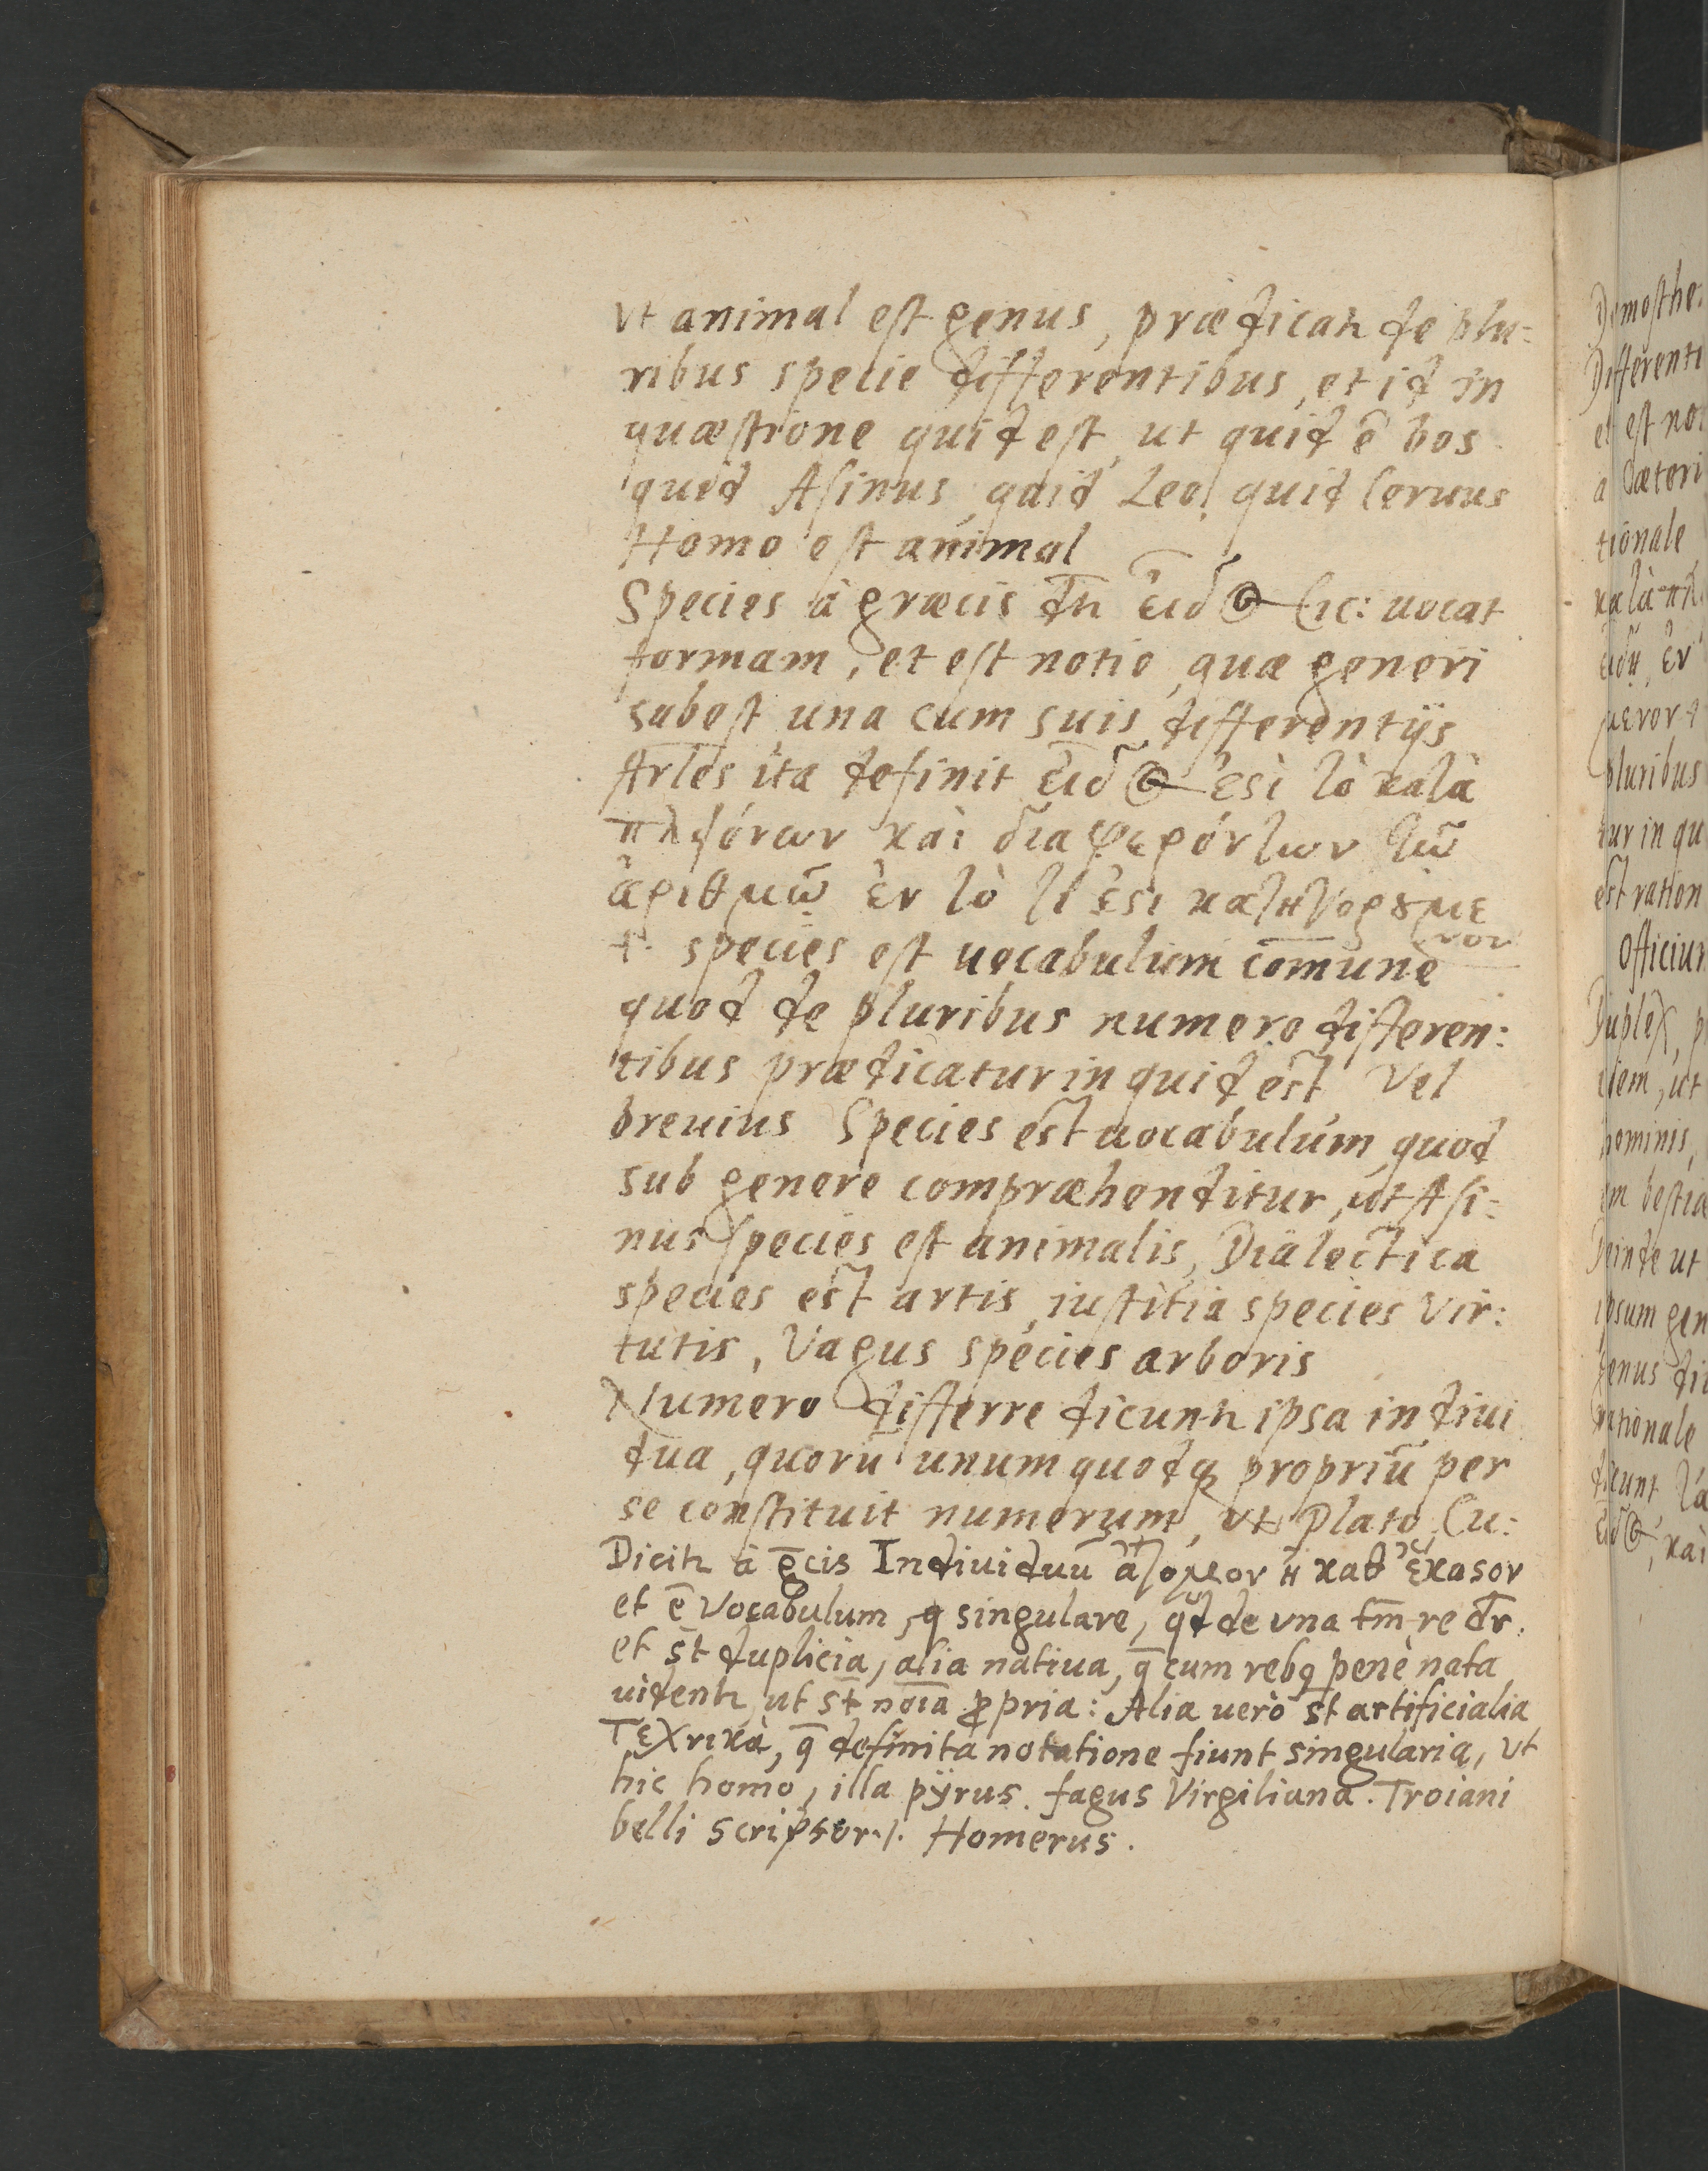 Vt animal est genus, prædicatr de plu:
ribus specie differentibus, et id in
quæstione quid est, ut quid ē bos
quid Asinus, quid Leo, quid Ceruus
Homo est animal
Species à græcis dr̄ εἶδος Cic: uocat
formam, et est notio, quæ generi
subest una cum suis differentijs
Arles ita definit εἶδος ἐστὶ τὸ κατὰ
πλειόνων καὶ διαφερόντων τῶ
ἀριθμῷ ἐν τὸ τί ἐστι κατηγορούμε
νον
+. species est uocabulum com̄une
quod de pluribus numero differen:
tibus prædicatur in quid est Vel
breuius Species est uocabulum, quod
sub genere compræhenditur, ut Asi:
nus species est animalis, Dialectica
species est artis, iustitia species Vir:
tutis, Vagus species arboris
Numero differre dicuntr ipsa indiui
dua, quorū unumquodq; propriū per
se constituit numerum, vt Plato, Cu:
Dicitr à ḡcis Indiuiduū ἄτομον ἢ καθ' ἕκαστον
et ē Vocabulum, q singulare, qd de vna tm̄ re dr̄.
et st̄ duplicia, alia natiua, q̄ cum rebq penè nata
uidentr, ut st̄ nōia ꝓpria: Alia uerò st̄ artificialia
τεχνικὰ, q̄ definita notatione fiunt singularia, vt
hic homo, illa pyrus. fagus Virgiliana. Troiani
belli scriptor ./. Homerus.
Demosthe:
Differenti
et est no
a Cæteri
tionale
κατὰ πλ
εἴδη, ἐν
μενον +
pluribus
tur in qu
est ration
Officiu
Duplex, p
ciem, ut
hominis,
em bestia
Deinde ut
ipsum gen
genus di
rationale
dicunt τὰ
εἶδος, καὶ